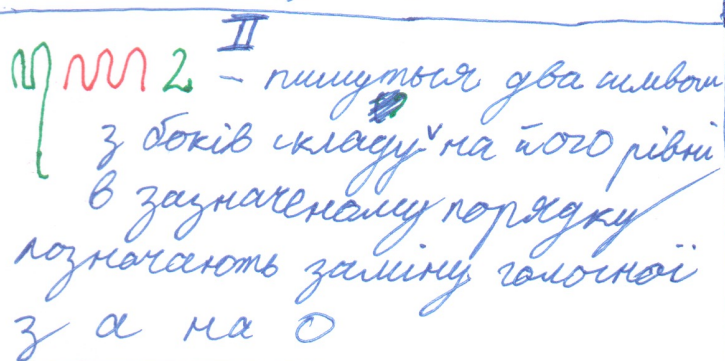 II
– пишуться два символи
з боків складу на його рівні
в зазначеному порядку
позначають заміну голосної
з а на о